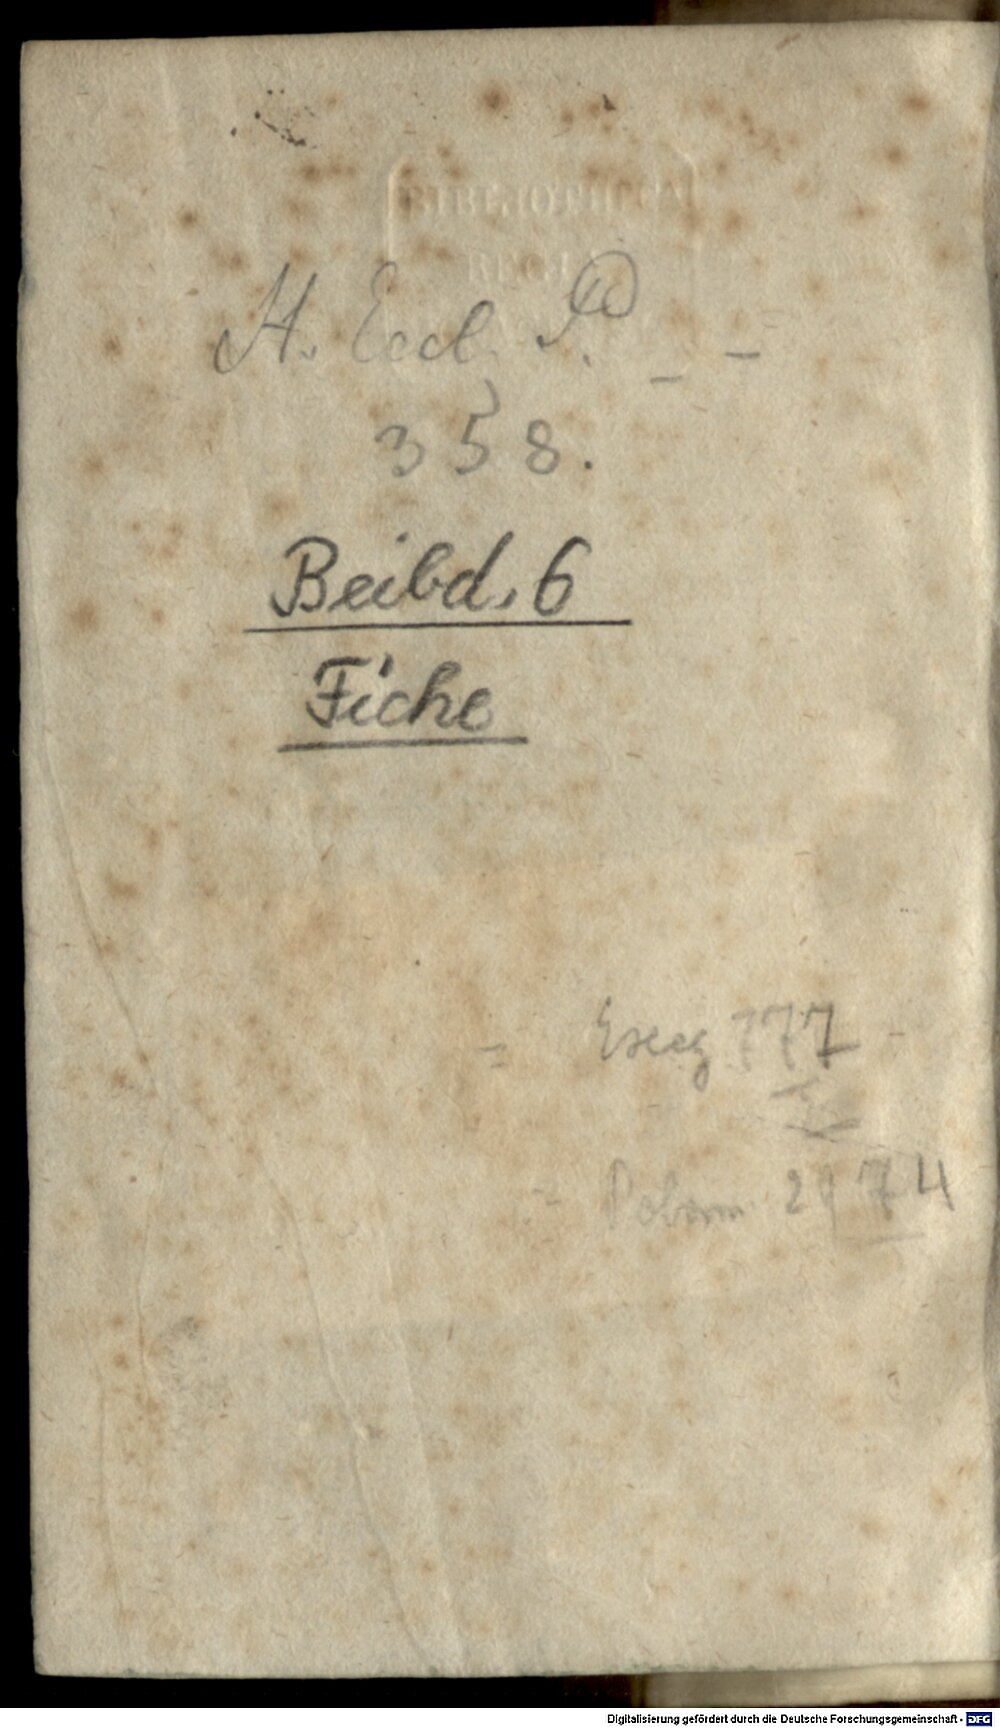 BIBLIOTHECA
REGIA
H. Eccl.
358.
Beibd. 6
Fiche
= Exeg 777
= Polem 2974
Digitalisierung gefördert durch die Deutsche Forschungsgemeinschaft - DFG